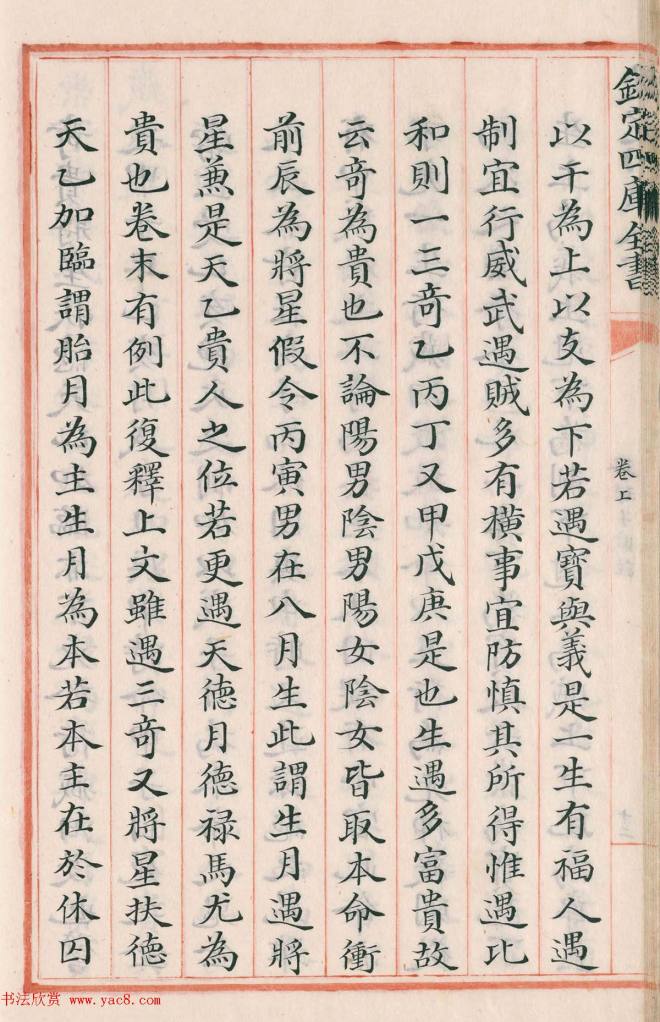 欽定四庫全書
卷上
十二
以干為上以支為下若遇寶與義是一生有福人遇
制宜行威武遇賊多有橫事宜防慎其所得惟遇比
和則一三竒乙丙丁又甲戊庚是也生遇多富貴故
云竒為貴也不論陽男陰男陽女陰女皆取本命衝
前辰為將星假令丙寅男在八月生此謂生月遇將
星兼是天乙貴人之位若更遇天徳月徳禄馬尤為
貴也卷末有例此復釋上文雖遇三竒又將星扶德
天乙加臨謂胎月為主生月為本若本主在於休囚
书法欣赏 www.yac8.com